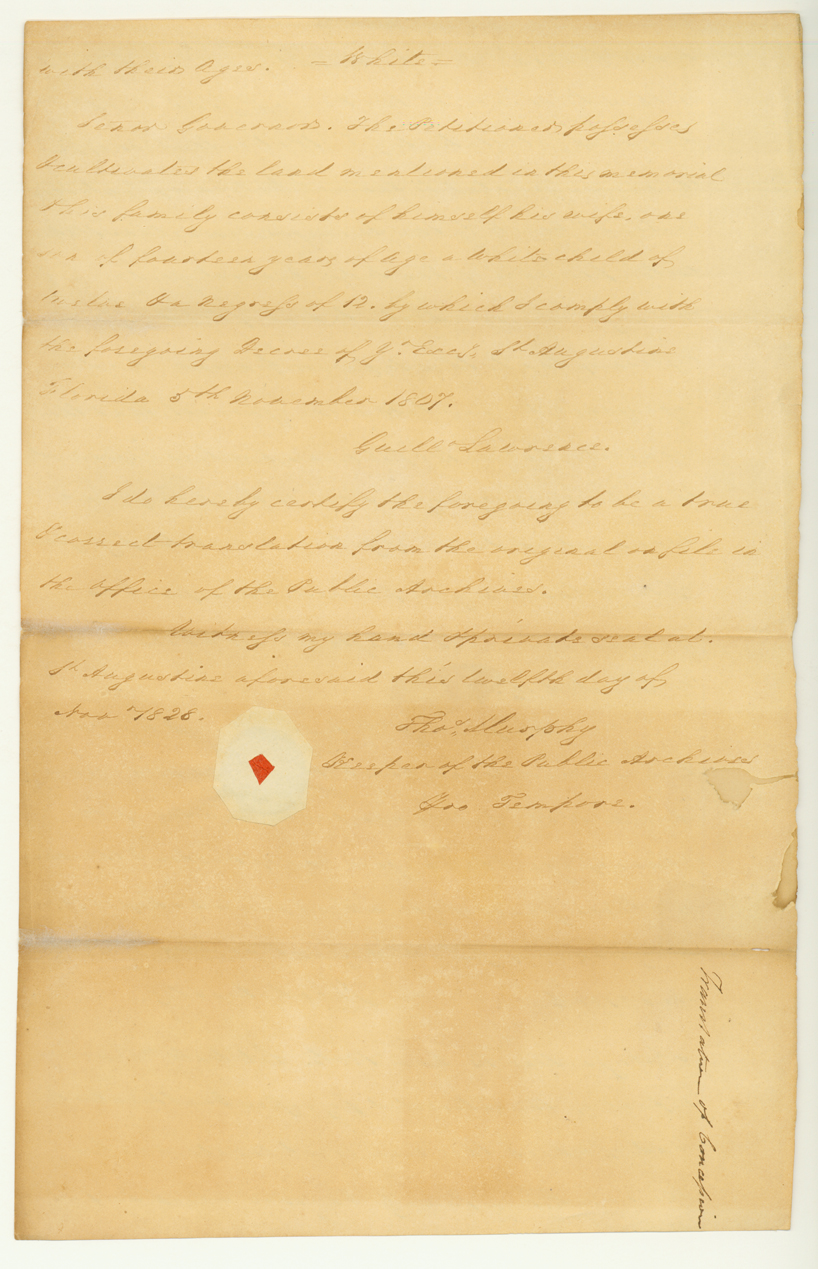 with their Ages. = White =
Senor Governor. The Petitioner possesses
& cultivates the land mentioned in this memorial
this family consists of himself his wife, one
son of fourteen years of age a White child of
twelve & a Negress of 12. by which I comply with
the foregoing Decree of Yr. Excy. St Augustine
Florida 5th November 1807.
Guillo Lawrence.
I do hereby certify the foregoing to be a true
& correct translation from the original on file in
the office of the Public Archives.
Witness my hand & private seal at
St Augustine aforesaid this twelfth day of
Novr 1828.
Thos. Murphy
Keeper of the Public Archives
Pro Tempore.
Translation of Concession